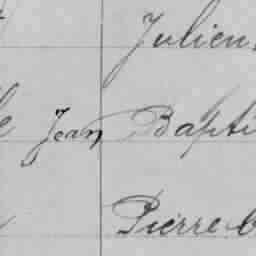 Julien
Jean Bapti
Pierre